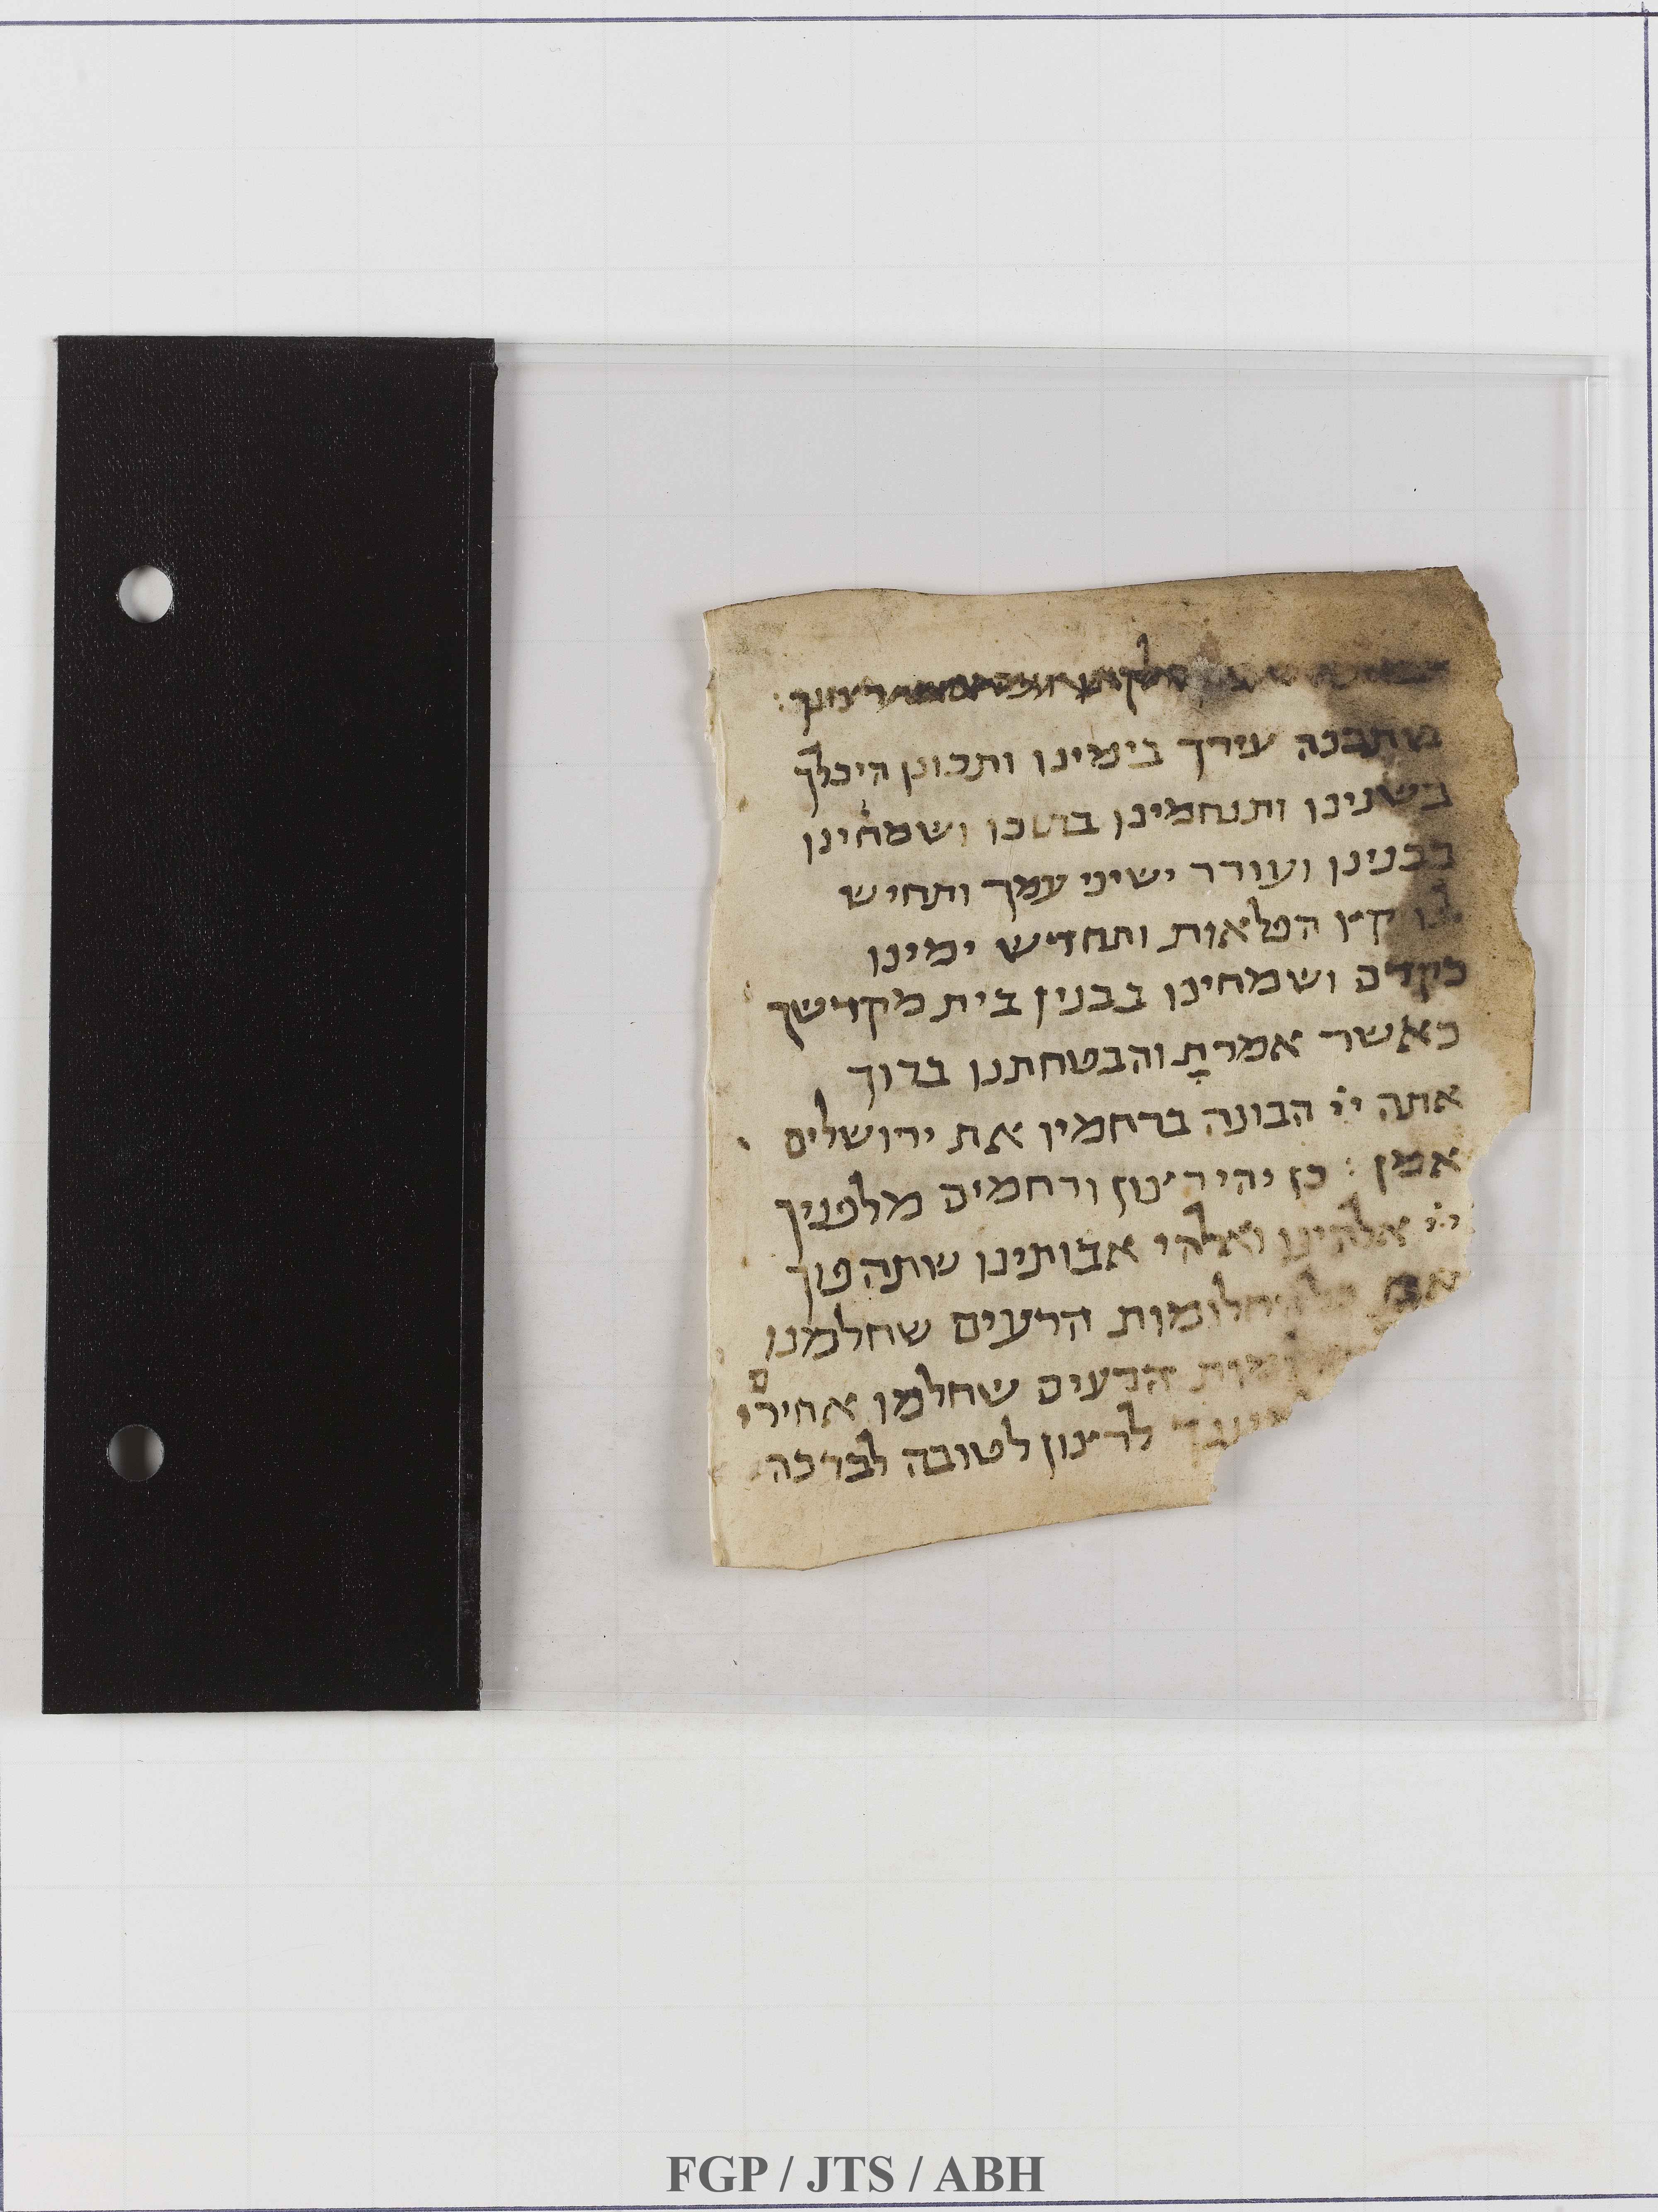 שתבנה עירך בימינו ותכונן היכלך
בשנינו ותנחמינו ושמחינו
בבנינו ועורר ישיני עמך ותחיש
לנו קץ הפלאות ותחדש ימינו
כקדם ושמחינו בבנין בית מקדשך
כאשר אמרת והבטחתנו ברוך
אתה ייי הבונה ברחמיו את ירושלים
אמן : כן יהי רצון ורחמים מלפניך
ייי אלהינו ואלהי אבותינו שתהפוך
את כל חלומות הרעים שחלמנו
הרעים שחלמו אחירים
לרצון לטובה לברכה
FGP / JTS / ABH